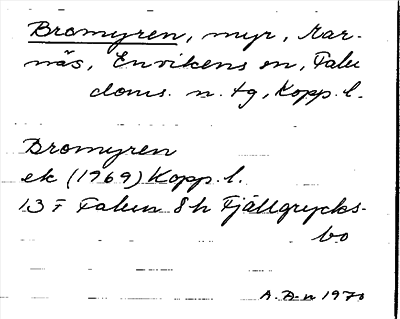 Bromyren, myr, Mar-
näs, Envikens sn, Falu
doms. n. tg, Kopp. l.
Bromyren
ek (1969) Kopp. l.
13 F Falun 8 h Fjällgrycks-
bo
A. D-n 1970